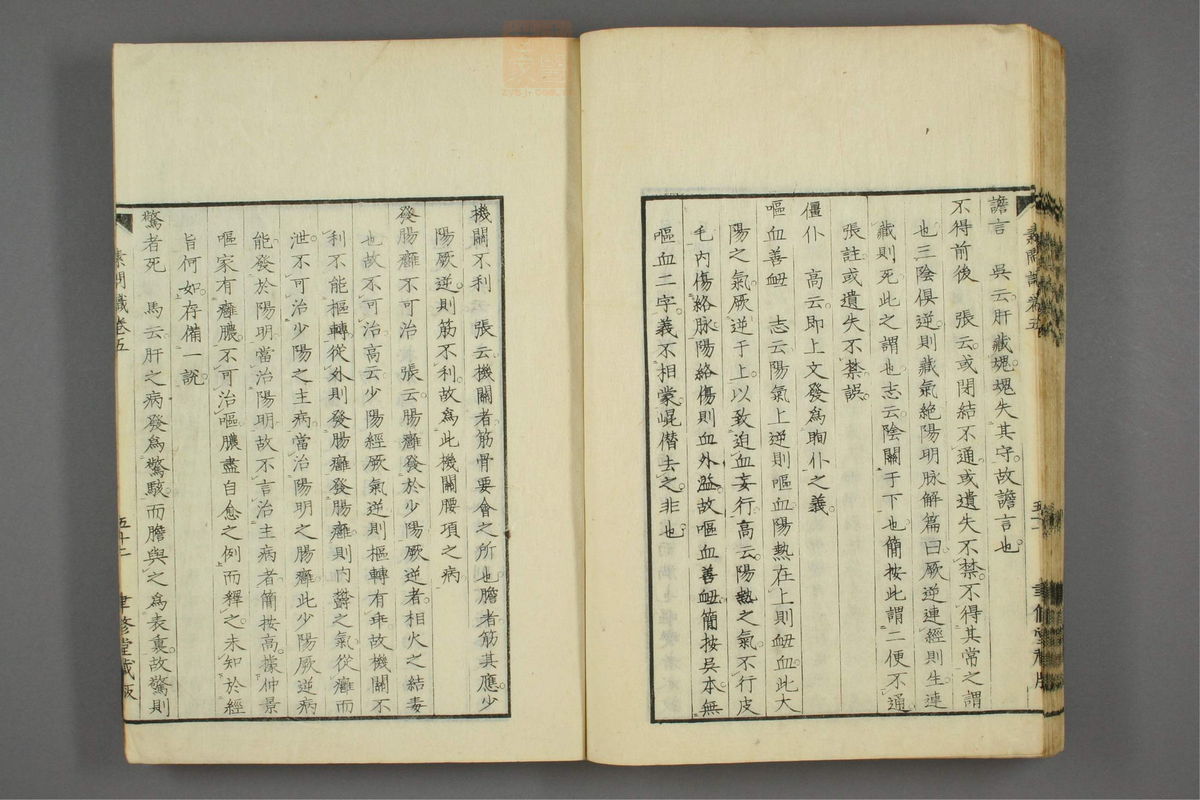 譫言　吳云肝藏塊塊失其守故譫言也
不得前後　張云或閉結不通或遺失不禁不得其常之謂
也三陰俱逆則藏氣絶陽明脉解篇曰厥逆連經則生連
藏則死此之謂也志云陰關于下也簡按此謂二便不通
張註或遺失不禁誤
僵仆　高云即上文發爲眴仆之義
嘔血善衂　志云陽氣上逆則嘔血陽熱在上則衂血此大
陽之氣厥逆于上以致迫血妄行高云陽熱之氣不行皮
毛内傷絡脉陽絡傷則血外溢故嘔血善衂簡按吳本無
嘔血二字義不相蒙崐僭去之非也
機關不利　張云機關者筋骨要會之所也膽者筋其應少
陽厥逆則筋不利故爲此機關腰項之病
發腸癰不可治　張云腸癰發於少陽厥逆者相火之結毒
也故不可治高云少陽經厥氣逆則樞轉有乖故機關不
利不能樞轉從外則發腸癰發腸癰則内鬱之氣從癰而
泄不可治少陽之主病當治陽明之腸癰此少陽厥逆病
能發於陽明當治陽明故不言治主病者簡按高據仲景
嘔家有癰膿不可治嘔膿盡自愈之例而釋之未知於經
旨何如存備一說
驚者死　馬云肝之病發爲驚駭而膽與之爲表裏故驚則
素問識卷五
五十二
聿修堂藏版